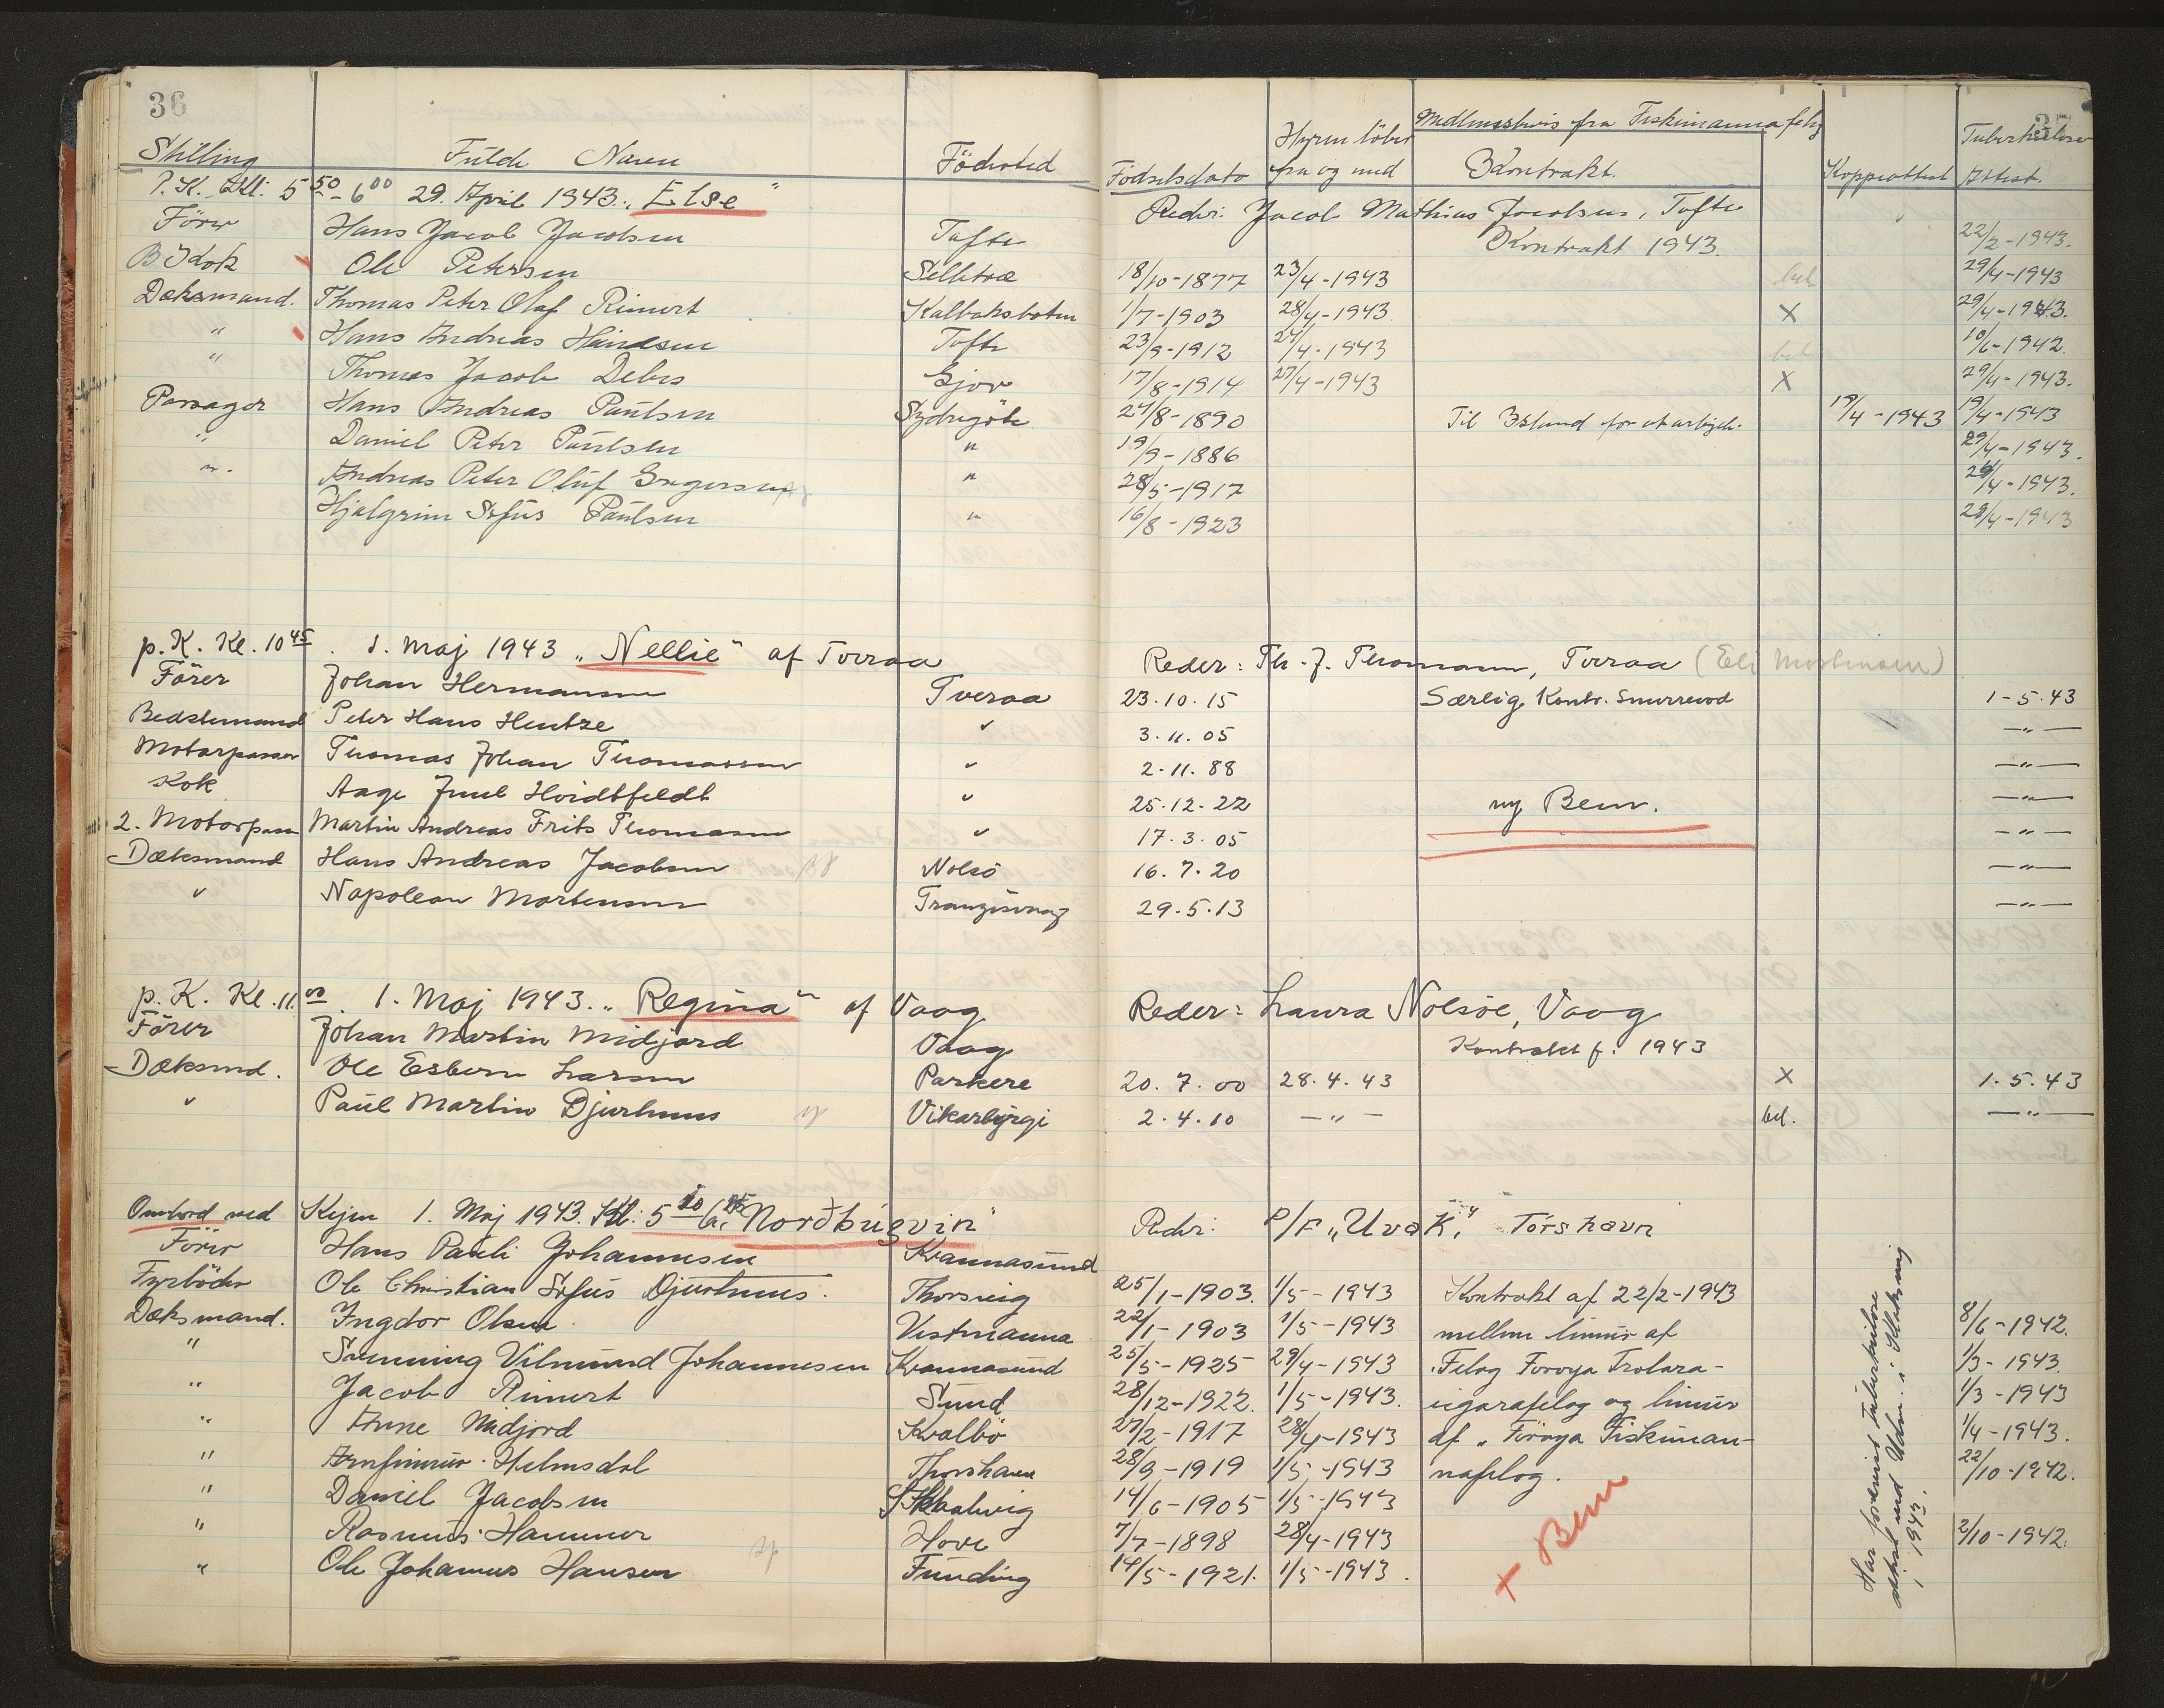 36
Stilling Fulde Navn Födested Födselsdato Hyren löber fra og med Medlemsbevis fra Fiskimannafelag Kontrakt. Koppeattest Tuberkulose Attest.
P.K. Kl: 5 50 - 6 00 29. April 1943. „Else" Reder: Jacob Mathias Jacobsen, Tofte
Förer Hans Jacob Jacobsen Tofte Kontrakt 1943. 22/2-1943.
Kok Ole Petersen Selletræ 18/10-1877 23/4-1943 bet 29/4-1943
Dæksmand. Thomas Peter Olaf Rinert Kalbaksbotn 1/7-1903 28/4-1943 X 29/4-1943.
" Hans Andreas Hansen Tofte 23/9-1912 27/4-1943 bet 10/6-1942.
" Thomas Jacob Debes Gjov 17/8-1914 27/4-1943 X 29/4-1943.
Passager Hans Andreas Paulsen Sydregöte 27/8-1890 Til Island for at arbejde. 19/4-1943 19/4-1943
" Daniel Peter Paulsen " 19/9-1886 29/4-1943.
" Andreas Peter Oluf Gregersen " 28/5-1917 29/4-1943.
Hjalgrim Sofus Paulsen " 16/8-1923 29/4-1943
p. K. Kl. 10 45. 1. Maj 1943 „Nellie" af Tveraa Reder: Th. J. Thomsen, Tveraa (Eli Mortensen)
Förer Johan Hermansen Tveraa 23.10.15 Særlig Kontr. Snurrevod 1-5.43
Bedstemand Peter Hans Hentze " 3.11.05 —"—
Motorpasser Thomas Johan Thomassen " 2.11.88 —"—
Kok Aage Juul Hvidtfeldt " 25.12.22 ny Bem. —"—
2. Motorpass Martin Andreas Frits Thomassen " 17.3.05 —"—
Dæksmand Hans Andreas Jacobsen Nolsö 16.7.20 —"—
" Napoleon Mortensen Frangisvaag 29.5.13 —"—
p. K. Kl. 11 00. 1. Maj 1943. „Regina" af Vaag Reder: Laura Nolsöe, Vaag
Förer Johan Martin Midjord Vaag Kontrakt f. 1943
Dæksmd. Ole Esbern Larsen Porkere 20.7.00 28.4.43 X 1.5.43
" Paul Martin Djurhuus Vikarbyrgi 2.4.10 —"— bet. —"—
Ombord ved Kajen 1. Maj 1943. Kl: 5 50 „Nordbúgvin" Reder: P/F „Uvak", Tórshavn
Förer Hans Pauli Johannesen Kvannasund
Fyrböder Ole Christian Sofus Djurhuus. Thorsvig 25/1-1903. 1/5-1943 Kontrakt af 22/2-1943
Dæksmand. Ingdor Olsen Vestmanna 22/1-1903 1/5-1943 mellem limur af 8/6-1942.
" Svenning Vilmund Johannesen Kvannasund 25/5-1925 29/4-1943 Felag Foroya Trolara- 1/3-1943.
" Jacob Rinert Sund 28/12-1922. 1/5-1943. eigarafelag og limur 1/3-1943
" Anne Midjord Kvalbö 27/2-1917 28/4-1943 af „Föroya Fiskiman- 1/4-1943.
" Arnfinnur Helmsdal Thorshavn 28/9-1919 1/5-1943 nafelag. 22/10-1942.
" Daniel Jacobsen Skaalevig 14/6-1905 1/5-1943
" Rasmus Hammer Hove 7/7-1898 28/4-1943 2/10-1942.
" Ole Johannus Hansen Funding 14/5-1921. 1/5-1943.
+ Bem
Har forevist tuberkulose attest ved Udm. i Klaksvig i 1943.